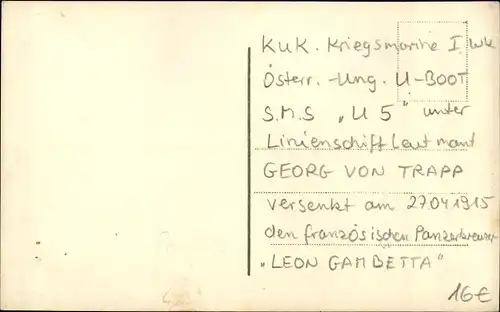 KuK. Kriegsmarine I. Wk
Österr.-Ung. U-BOOT
S.M.S „U 5" unter
Linienschiffleutnant
GEORG VON TRAPP
versenkt am 27.04.1915
den französischen Panzerkreuzer
„LEON GAMBETTA"
16€